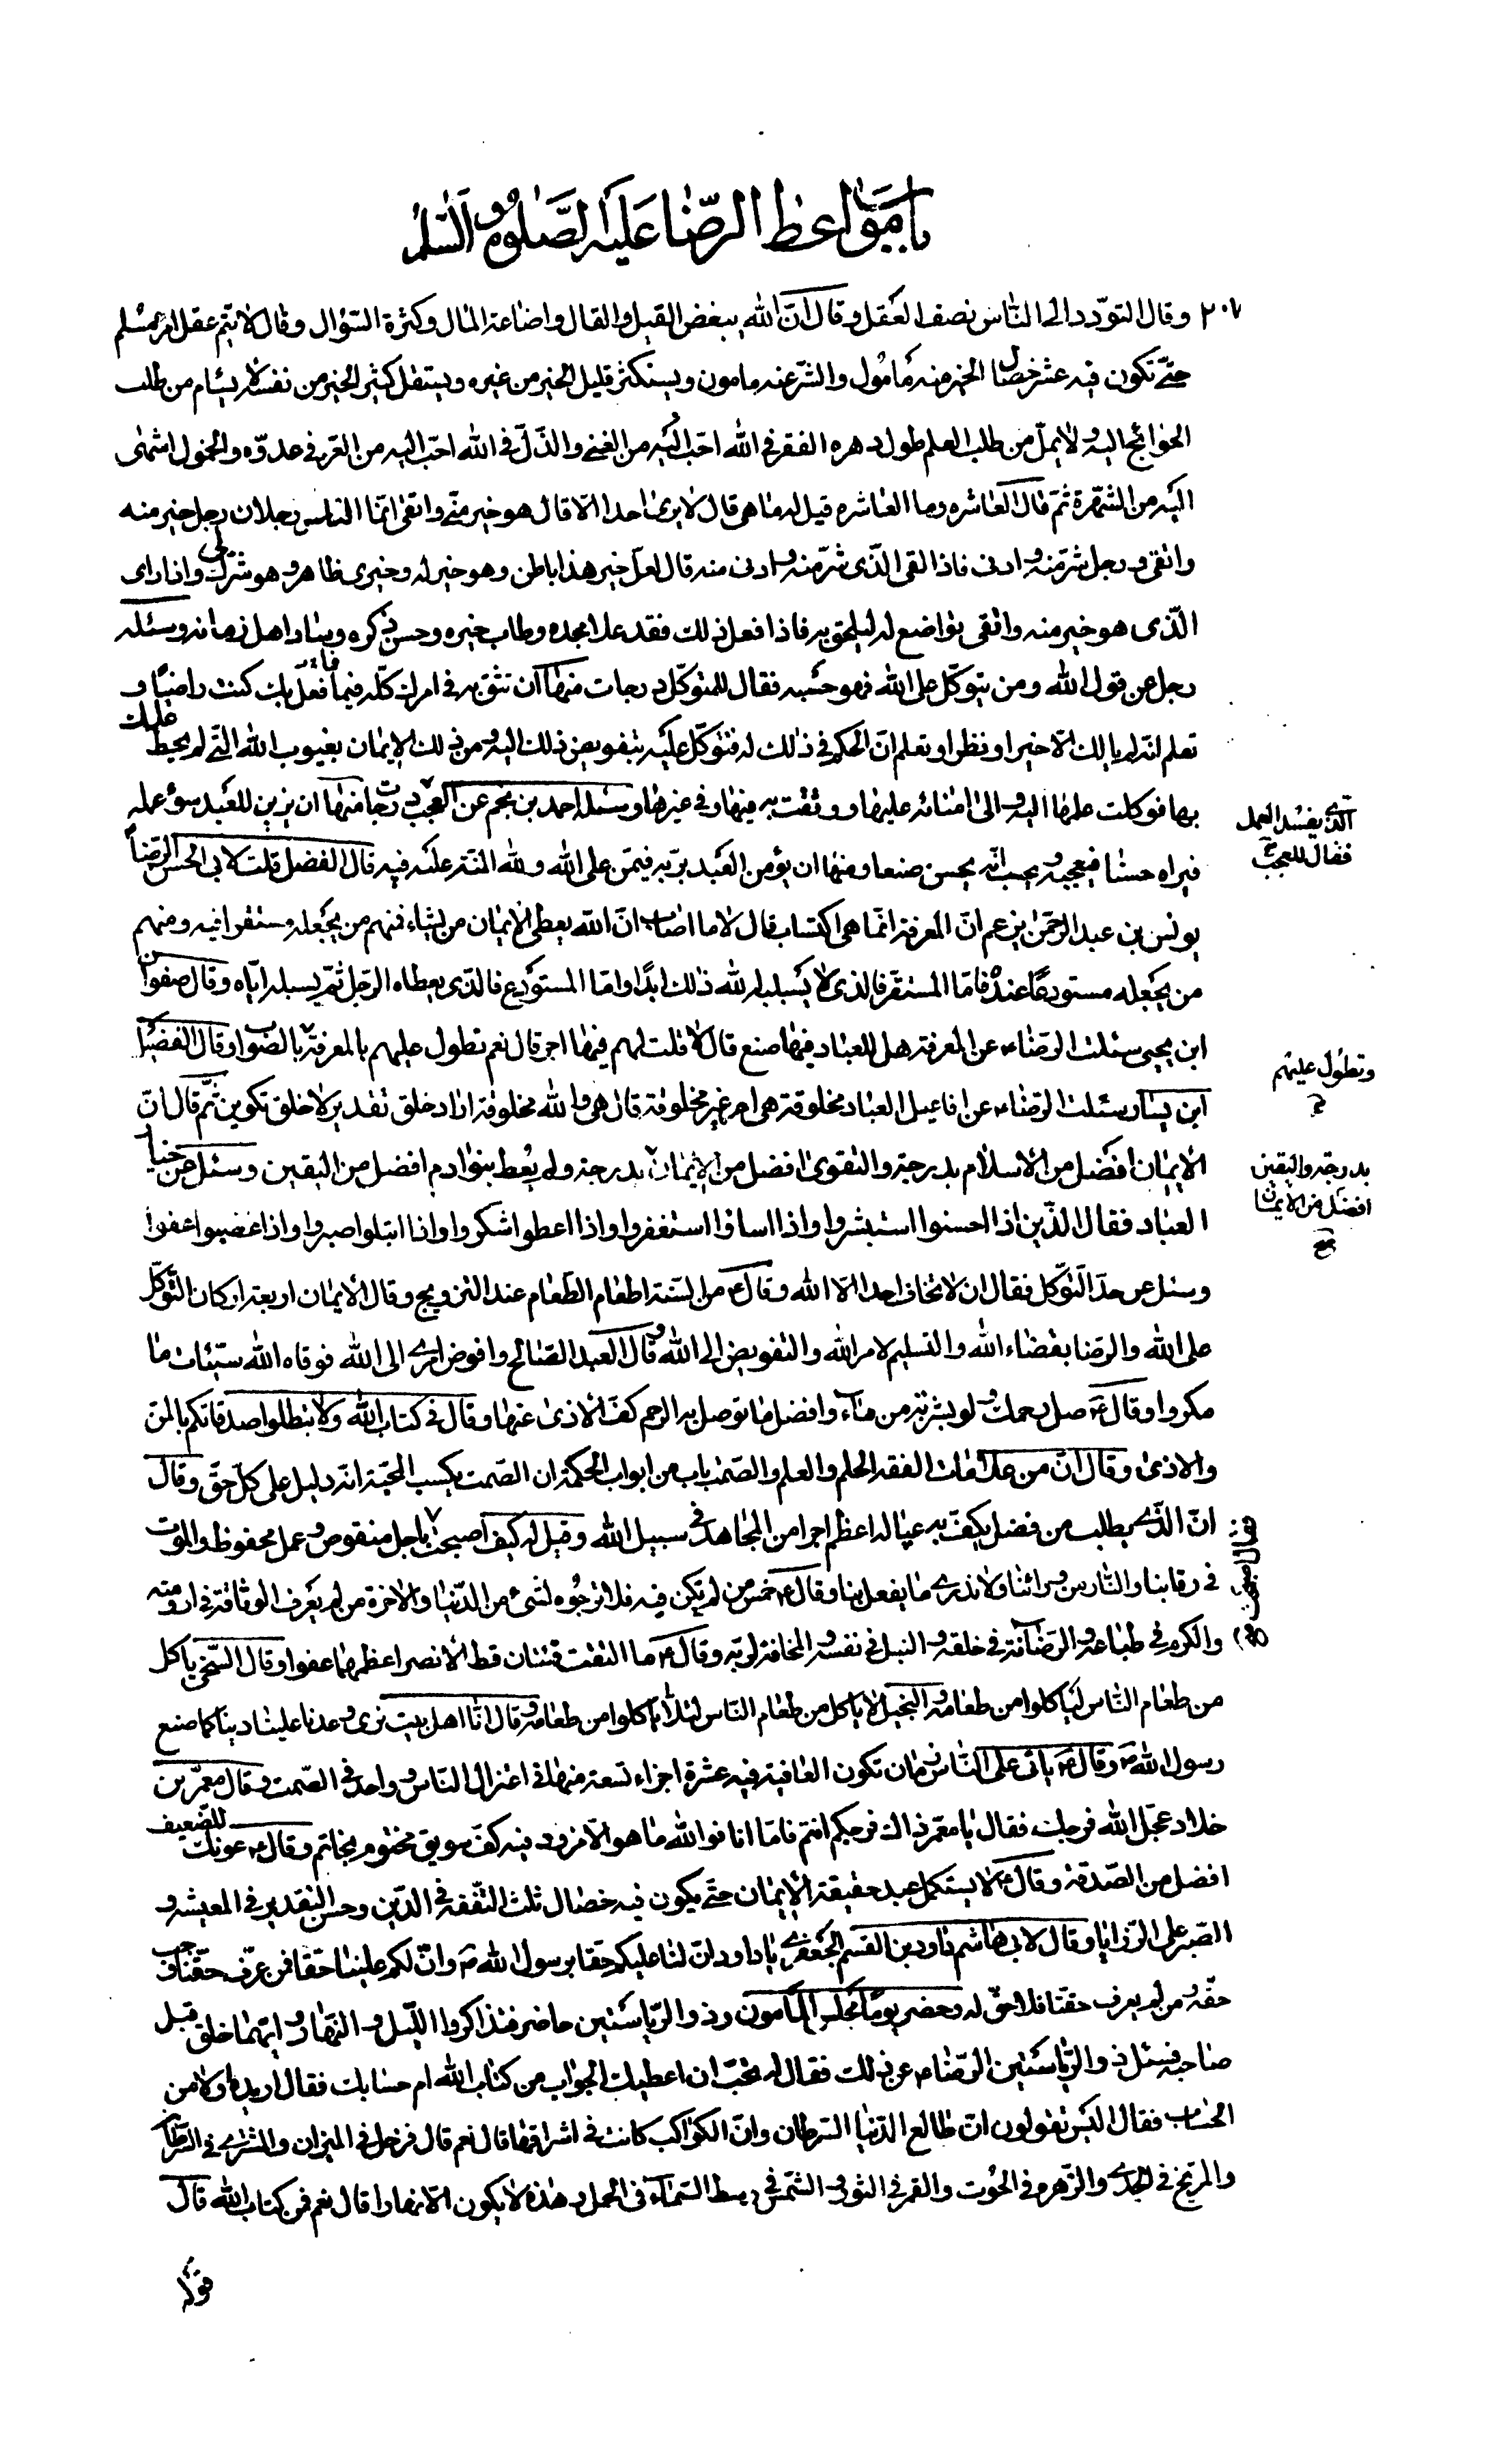 باب مواعظ الرضا عليه الصلوة والسلم
٢٠٧ وقال التودد الى الناس نصف العقل وقال ان الله يبغض القيل والقال واضاعة المال وكثرة السؤال وقال لا يتم عقل امرء مسلم
حتى تكون فيه عشر خصال الخير منه مأمول والشر عنه مامون ويستكثر قليل الخير من غيره ويستقل كثير الخير من نفسه لا يسئام من طلب
الحوائج اليه ولا يمل من طلب العلم طول دهره الفقر في الله احب اليه من الغنى والذل في الله احب اليه من العز في عدوه والخمول اشهى
اليه من الشهرة ثم قال العاشره وما العاشره قيل له ما هي قال لا يرى احدا الا قال هو خير مني واتقى انما الناس رجلان رجل خير منه
واتقى ورجل شر منه وادنى فاذا لقى الذي شر منه وادنى منه قال لعل خير هذا باطن وهو خير له وخيري ظاهر وهو شر لي واذا راى
الذي هو خير منه واتقى تواضع له ليلحق به فاذا فعل ذلك فقد علا مجده وطاب خيره وحسن ذكره وساد اهل زمانه وسئله
رجل عن قول الله ومن يتوكل على الله فهو حسبه فقال للمتوكل درجات منها ان تثق به في امرك كله فيما فعل بك كنت راضيا و
تعلم انه لم يالك الا خيرا ونظرا وتعلم ان الحكم في ذلك له فتتوكل عليه بتفويض ذلك اليه ومن ذلك الايمان بغيوب الله التي لم يحط علمك
بها فوكلت علمها اليه والى امنائه عليها ووثقت به فيها وفي غيرها وسئله احمد بن نجم عن العجب درجات منها ان يزين للعبد سوء عمله
الذي يفسد العمل
فقال للعجب
فيراه حسنا فيعجبه ويحسب انه يحسن صنعا ومنها ان يؤمن العبد بربه فيمن على الله ولله المنة عليه فيه قال الفضل قلت لابي الحسن الرضا
يونس بن عبد الرحمن يزعم ان المعرفة انما هي اكتساب قال لا ما اصاب ان الله يعطي الايمان من يشاء فمنهم من يجعله مستقرا فيه ومنهم
من يجعله مستودعا عنده فاما المستقر فالذي لا يسلبه الله ذلك ابدا واما المستودع فالذي يعطاه الرجل ثم يسلبه اياه وقال صفوان
ابن يحيى سئلت الرضاء عن المعرفة هل للعباد فيها صنع قال لا قلت لهم فيها اجر قال نعم تطول عليهم بالمعرفة بالصواب وقال الفضيل
وتطول عليهم
ابن يسار سئلت الرضاء عن افاعيل العباد مخلوقة هي ام غير مخلوقة قال هي والله مخلوقة اراد خلق تقدير لا خلق تكوين ثم قال ان
الايمان افضل من الاسلام بدرجة والتقوى افضل من الايمان بدرجة ولم يعط بنوا دم افضل من اليقين وسئل عن خيار
بدرجة واليقين
افضل من الايمان
العباد فقال الذين اذا احسنوا استبشروا واذا اساؤا استغفروا واذا اعطوا شكروا واذا ابتلوا صبروا واذا غضبوا عفوا
وسئل عن حد التوكل فقال ان لا تخاف احدا الا الله وقال من السنة اطعام الطعام عند التزويج وقال الايمان اربعة اركان التوكل
على الله والرضا بقضاء الله والتسليم لامر الله والتفويض الى الله وقال العبد الصالح وافوض امري الى الله فوقاه الله سيئات ما
مكروا وقال صل رحمك ولو بشربة من ماء وافضل ما توصل به الرحم كف الاذى عنها وقال في كتاب الله ولا تبطلوا صدقاتكم بالمن
والاذى وقال ان من علامات الفقه الحلم والعلم والصمت باب من ابواب الحكمة ان الصمت يكسب المحبة انه دليل على كل حق وقال
ان الذي يطلب من فضل يكف به عياله اعظم اجرا من المجاهد في سبيل الله وقيل له كيف اصبحت باجل منقوص وعمل محفوظ والموت
فقال اصبحت
في رقابنا والنار من ورائنا ولا ندري ما يفعل بنا وقال خمس من لم تكن فيه فلا ترجوه لشيء من الدنيا والاخرة من لم يعرف الوثاقة في ارومته
والكرم في طباعه والرصانة في خلقه والنبل في نفسه والمخافة لربه وقال ما التقت فئتان قط الا نصر اعظمهما عفوا وقال السخي ياكل
من طعام الناس لياكلوا من طعامه والبخيل لا ياكل من طعام الناس لئلا ياكلوا من طعامه وقال انا اهل بيت نرى وعدنا علينا دينا كما صنع
رسول الله وقال ياتي على الناس زمان تكون العافية فيه عشرة اجزاء تسعة منها في اعتزال الناس وواحد في الصمت وقال معمر بن
خلاد عجل الله فرجك فقال يا معمر ذاك فرجكم انتم فاما انا فوالله ما هو الا مزود فيه كف سويق مختوم بخاتم وقال عونك للضعيف
افضل من الصدقة وقال لا يستكمل عبد حقيقة الايمان حتى يكون فيه خصال ثلث التفقه في الدين وحسن التقدير في المعيشه و
الصبر على الرزايا وقال لابي هاشم داود بن القسم الجعفري يا داود ان لنا عليكم حقا برسول الله وان لكم علينا حقا فمن عرف حقنا وجب
حقه ومن لم يعرف حقنا فلا حق له وحضر يوما مجلس المامون وذو الرياستين حاضر فتذاكروا الليل والنهار وايهما خلق قبل
صاحبه فسئل ذو الرياستين الرضاء عن ذلك فقال له تحب ان اعطيك الجواب من كتاب الله ام حسابك فقال اريده اولا من
الحساب فقال اليس تقولون ان طالع الدنيا السرطان وان الكواكب كانت في اشرافها قال نعم قال فزحل في الميزان والمشتري في السرطان
والمريخ في الجدي والزهره في الحوت والقمر في الثور والشمس في وسط السماء في الحمل وهذه لا يكون الا نهارا قال نعم فمن كتاب الله قال
قوله